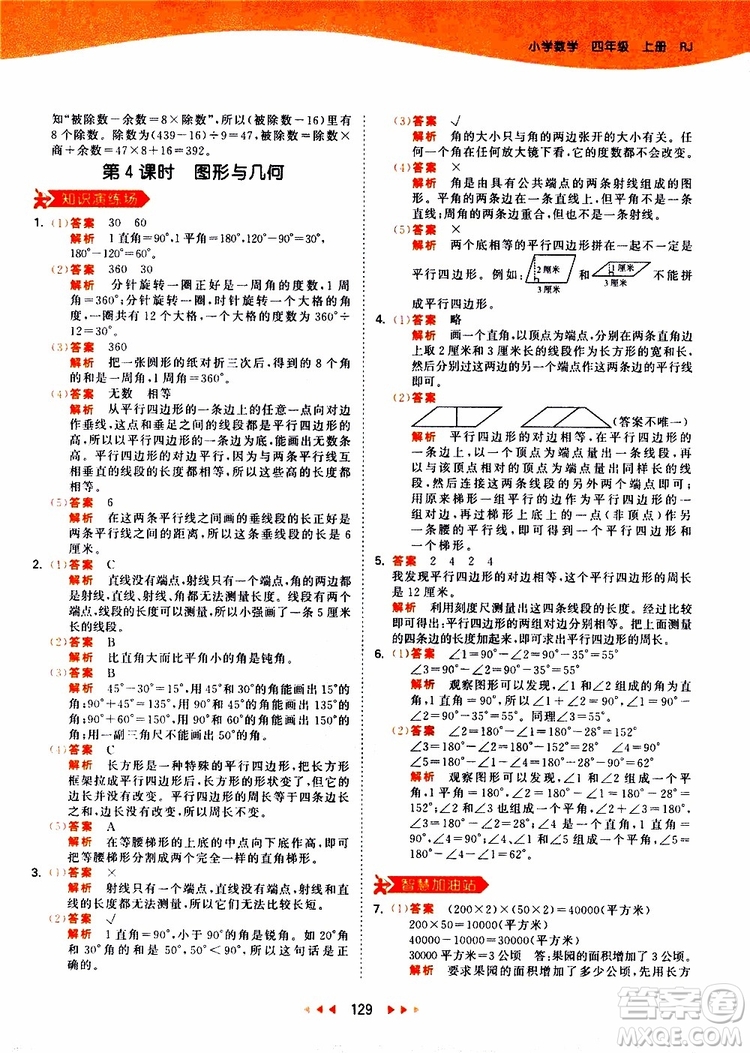 小学数学 四年级 上册 RJ
知“被除数－余数＝8×除数”，所以（被除数－16）里有
8个除数。除数为(439－16)÷(8＋1)＝47，被除数＝
商＋余数＝8×47＋16＝392。
第4课时 图形与几何
知识演练场
1. (1)答案 30 60
解析 1直角＝90°，1平角＝180°，90°－60°＝30°，
180°－120°＝60°。
(2)答案 360 30
解析 分针旋转一圈，刚好是一周角的度数，即
360°。分针旋转一圈，时针旋转一个大格，一个
钟表共有12个大格，一个大格的度数为360°÷
12＝30°。
(3)答案 360
解析 把一张圆形的纸对折三次后，得到的8个角
的和是一周角，一周角＝360°。
(4)答案 无数 相等
解析 从平行四边形的一条边上的任意一点向对边
作垂线，这点和垂足之间的线段都是平行四边形的
高，所以一个平行四边形的一条边上能画出无数条
高。又因为平行四边形的两组对边互相平行，所以
互相垂直的线段的长度都相等，即这些高的长度都
相等。
(5)答案 6
解析 在这两条平行线之间画的垂线段的长正好是
两条平行线之间的距离，所以垂线段的长也是6
厘米。
2. (1)答案 C
解析 直线没有端点，射线只有一个端点，直线的两边
都是射线，直线、射线都无法测量长度；线段有两个
端点，线段的长度可以测量，所以小强画了一条5厘米
长的线段。
(2)答案 B
解析 比直角大且比平角小的角是钝角。
(3)答案 B
解析 45°－30°＝15°，用45°和30°的角能画出15°的
角；90°＋45°＝135°，用90°和45°的角能画出135°的
角；90°＋60°＝150°，用90°和60°的角能画出150°的
角；用一副三角尺无法画出40°的角。
(4)答案 C
解析 长方形是一种特殊的平行四边形，把长方形
框架拉成平行四边形后，长方形的形状变了，但四条
边长并没有改变。平行四边形的周长等于四条边长
之和，边长没有改变，所以周长不变。
(5)答案 A
解析 在等腰梯形的上底的中点向下底作高，即可
把等腰梯形分割成两个完全一样的直角梯形。
3. (1)答案 ×
解析 射线只有一个端点，无法测量长度。
(2)答案 √
解析 1直角＝90°，小于90°的角是锐角。因为40°的
角和30°的角都小于90°，所以这句话是正确的。
(3)答案 √
解析 角的大小只与角的两边张开的大小有关。因此
把一个角放在放大镜下看，它的度数不会改变。
(4)答案 ×
解析 角是由具有公共端点的两条射线组成的图
形。平角的两边在一条直线上，但平角不是一条直
线；周角的两条边重合，但周角不是射线。
(5)答案 ×
解析 两个底相等的平行四边形拼在一起不一定是
平行四边形。例如：2厘米 3厘米 和 1厘米 3厘米 不能拼
成平行四边形。
4. (1)答案 略
解析 画一个直角，以顶点为端点，分别在两条直角边
上取2厘米和3厘米长的线段作为长方形的宽和长。
然后分别过这两边的另一个端点作这两边的平行线。
(2)答案
(答案不唯一)
解析 平行四边形的对边相等，在平行四边形的
一条边上，以一个顶点为端点量出一条线段，在对
边上以相对的顶点为端点量出同样长的线段，
连接这两条线段的另一个端点即可；
用原来梯形一组平行的边作为平行四边形的一
组对边，再过梯形上底上的一点（非顶点）作其
中一条腰的平行线即可。
5. 答案 2 4 2 4
我发现平行四边形的对边相等，这个平行四边形的周长
是12厘米。
解析 利用刻度尺测量出这四条线段的长度。经过比较
即可得出：平行四边形的两组对边分别相等。把上面测量
的四条边的长度加起来，即可求出平行四边形的周长。
6. (1)答案 ∠1＝90°－∠2＝90°－35°＝55°
∠3＝90°－∠2＝90°－35°＝55°
解析 观察图形可以发现，∠1和∠2组成的角为直
角，所以∠1＝90°－∠2＝55°。同理∠3＝55°。
(2)答案 ∠2＝180°－∠1＝180°－152°＝28°
∠3＝180°－∠2＝180°－28°＝152°
∠4＝180°－∠1＝180°－152°＝28°
解析 观察图形可以发现，∠1和∠2组成的角为平
角，所以∠2＝180°－∠1＝28°；∠2和∠3组成的角为
平角，所以∠3＝180°－∠2＝152°；∠1和∠4组成的
角为平角，所以∠4＝180°－∠1＝28°。
智慧加油站
7. (1)答案 (200×2)×(50×2)＝40000(平方米)
200×50＝10000(平方米)
40000－10000＝30000(平方米)
30000平方米＝3公顷 答：果园的面积增加了3公顷。
解析 要求果园的面积增加了多少公顷，先求扩大后
129
答案圈
MXQE.COM